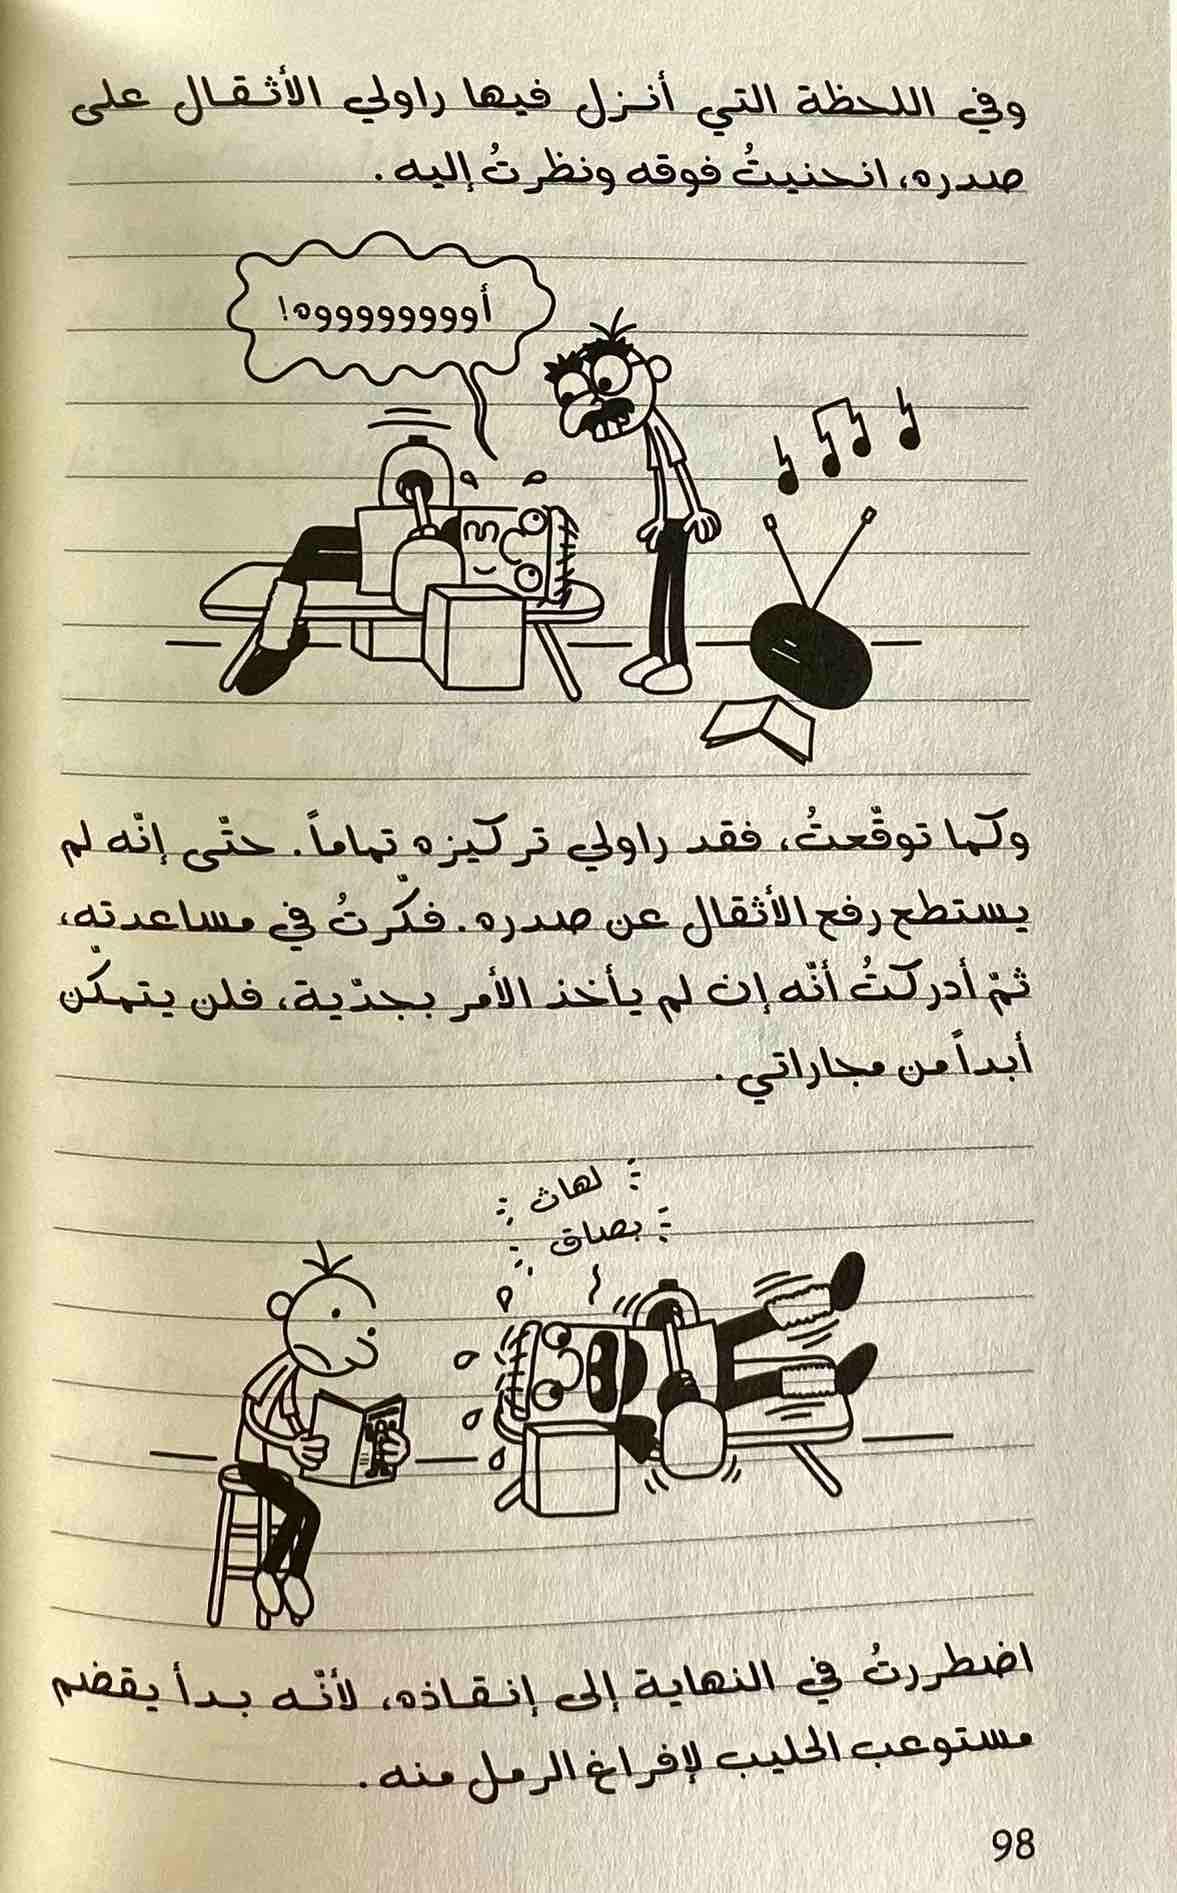 وفي اللحظة التي أنزل فيها راولي الأثقال على
صدره، انحنيتُ فوقه ونظرتُ إليه.
أووووووووه!
وكما توقّعتُ، فقد راولي تركيزه تماماً. حتّى إنّه لم
يستطع رفع الأثقال عن صدره. فكّرتُ في مساعدته،
ثمّ أدركتُ أنّه إن لم يأخذ الأمر بجدّية، فلن يتمكّن
أبداً من مجاراتي.
لهاث
بصاق
اضطررتُ في النهاية إلى إنقاذه، لأنّه بدأ يقضم
مستوعب الحليب لإفراغ الرمل منه.
98